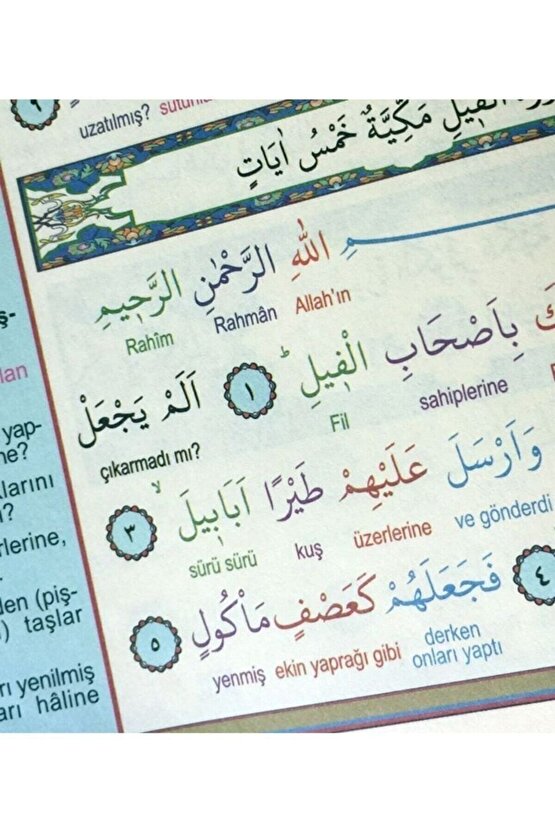 uzatılmış?
٩
الْفٖيلِ مَكِّيَّةٌ خَمْسُ اٰيَاتٍ
اللّٰهِ الرَّحْمٰنِ الرَّحٖيمِ
Allah'ın Rahmân Rahîm
بِاَصْحَابِ الْفٖيلِ ﴿١﴾ اَلَمْ يَجْعَلْ
sahiplerine Fil çıkarmadı mı?
وَاَرْسَلَ عَلَيْهِمْ طَيْرًا اَبَابٖيلَ ﴿٣﴾
ve gönderdi üzerlerine kuş sürü sürü
﴿٤﴾ فَجَعَلَهُمْ كَعَصْفٍ مَأْكُولٍ ﴿٥﴾
derken onları yaptı ekin yaprağı gibi yenmiş
yap-
larını
rlerine,
den (piş-
taşlar
yenilmiş
hâline